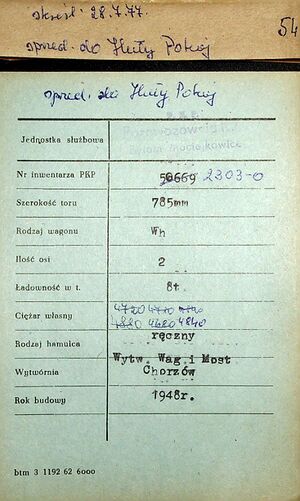 skreśl. 28.7.77.
54
sprzed. do Huty Pokój
sprzed. do Huty Pokój
P.K.P.
Parowozownia
Bytom
Jednostka służbowa
Nr inwentarza PKP 50669 2303-0
Szerokość toru 785mm
Rodzaj wagonu Wh
Ilość osi 2
Ładowność w t. 8t.
Ciężar własny 4720
4880 4620 4840
Rodzaj hamulca ręczny
Wytwórnia Wytw. Wag i Most
Chorzów
Rok budowy 1948r.
btm 3 1192 62 6000